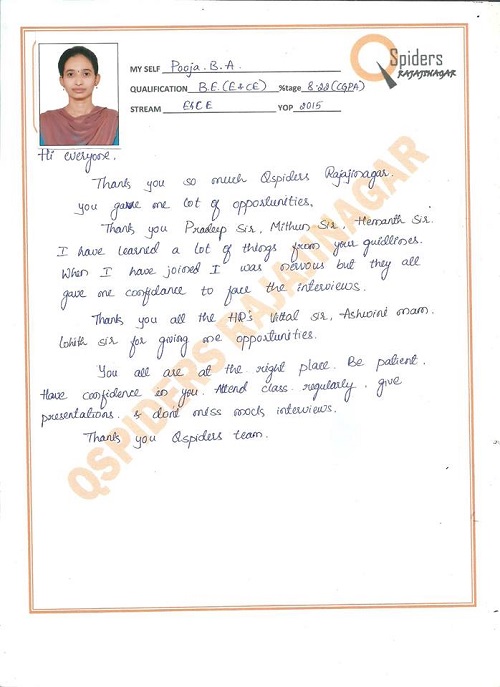 MY SELF Pooja. B. A.
QSpiders
RAJAJINAGAR
QUALIFICATION B.E. (E & CE) %tage 8.22 (CGPA)
STREAM E&CE YOP 2015
Hi everyone.
Thank you so much Qspiders Rajajinagar.
you gave me lot of opportunities.
Thank you Pradeep Sir, Mithun Sir, Hemanth Sir.
I have learned a lot of things from your guidlines.
When I have joined I was nervous but they all
gave me confidance to face the interviews.
Thank you all the HR's Vittal sir, Ashwini mam.
Lohith sir for giving me opportunities.
You all are at the right place. Be patient.
Have confidence in you. Attend class regularly. give
presentations. & dont miss mock interviews.
Thank you Qspiders team.
QSPIDERS RAJAJINAGAR